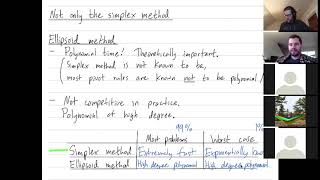 Not only the simplex method
Ellipsoid method
- Polynomial time! Theoretically important.
(Simplex method is not known to be,
most pivot rules are known not to be polynomial)
- Not competitive in practice.
Polynomial of high degree.
99%
Most problems Worst case
Simplex method Extremely fast Exponentially
Ellipsoid method High degree polynomial High degree polynomial